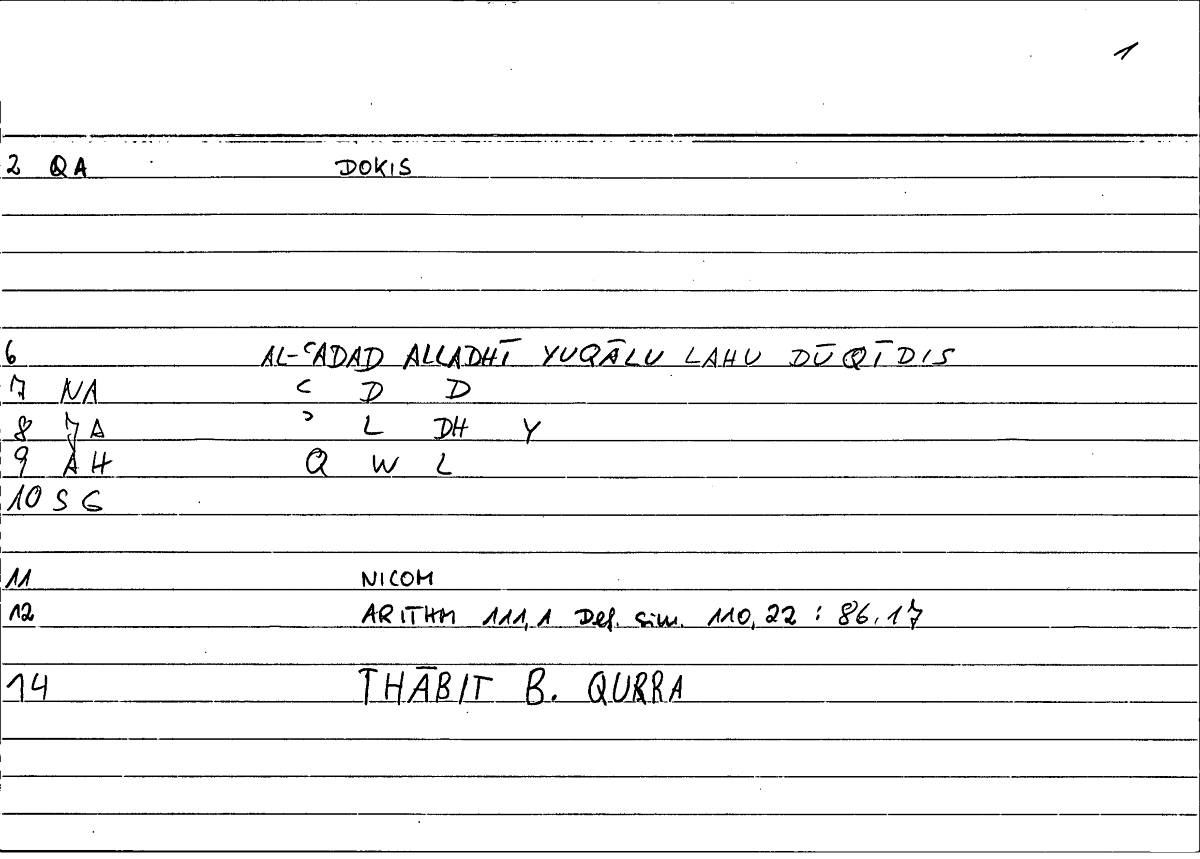 1
2 QA DOKIS
6 AL-ʿADAD ALLADHĪ YUQĀLU LAHU DŪQĪDIS
7 NA ʿ D D
8 JA ʾ L DH Y
9 AH Q W L
10 SG
11 NICOM
12 ARITHM 111,1 Def. sim. 110,22 : 86.17
14 THĀBIT B. QURRA